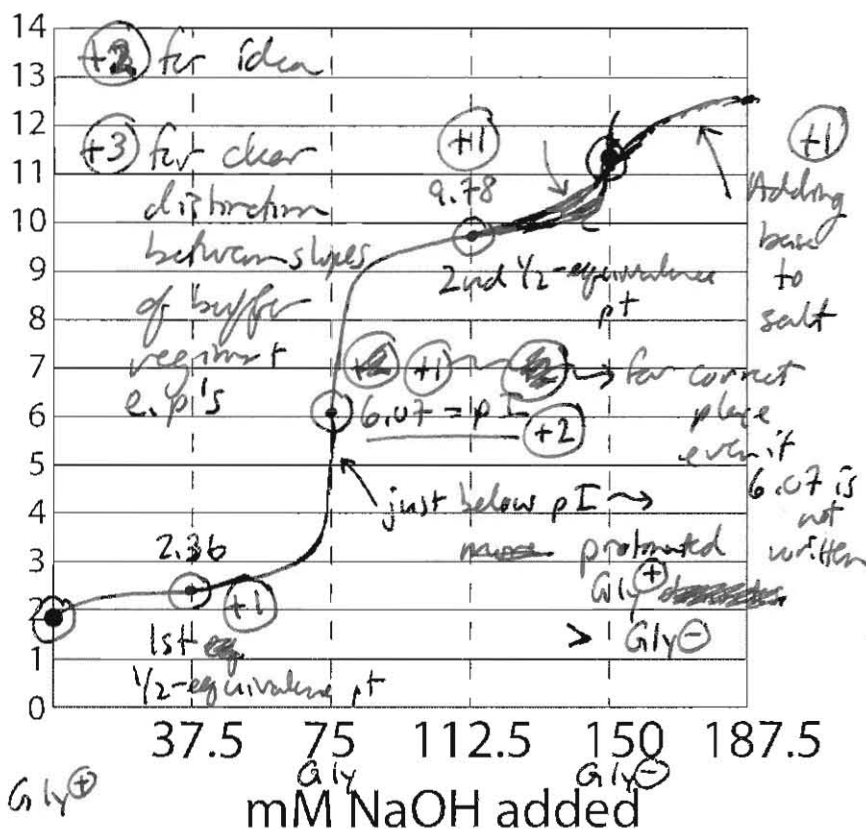 14
13
12
11
10
9
8
7
6
5
4
3
2
1
0
+2 for idea
+3 for clear
distinction
between slopes
of buffer
regions &
e.p's
+1
9.78
2nd 1/2-equivalence
pt
+1
Adding
base
to
salt
+2 +1 → for correct
place
even if
6.07 is
not
written
6.07 = pI +2
just below pI →
protonated
Gly⊕
> Gly⊖
2.36
+1
1st
1/2-equivalence pt
37.5 75 112.5 150 187.5
Gly⊕ Gly Gly⊖
mM NaOH added